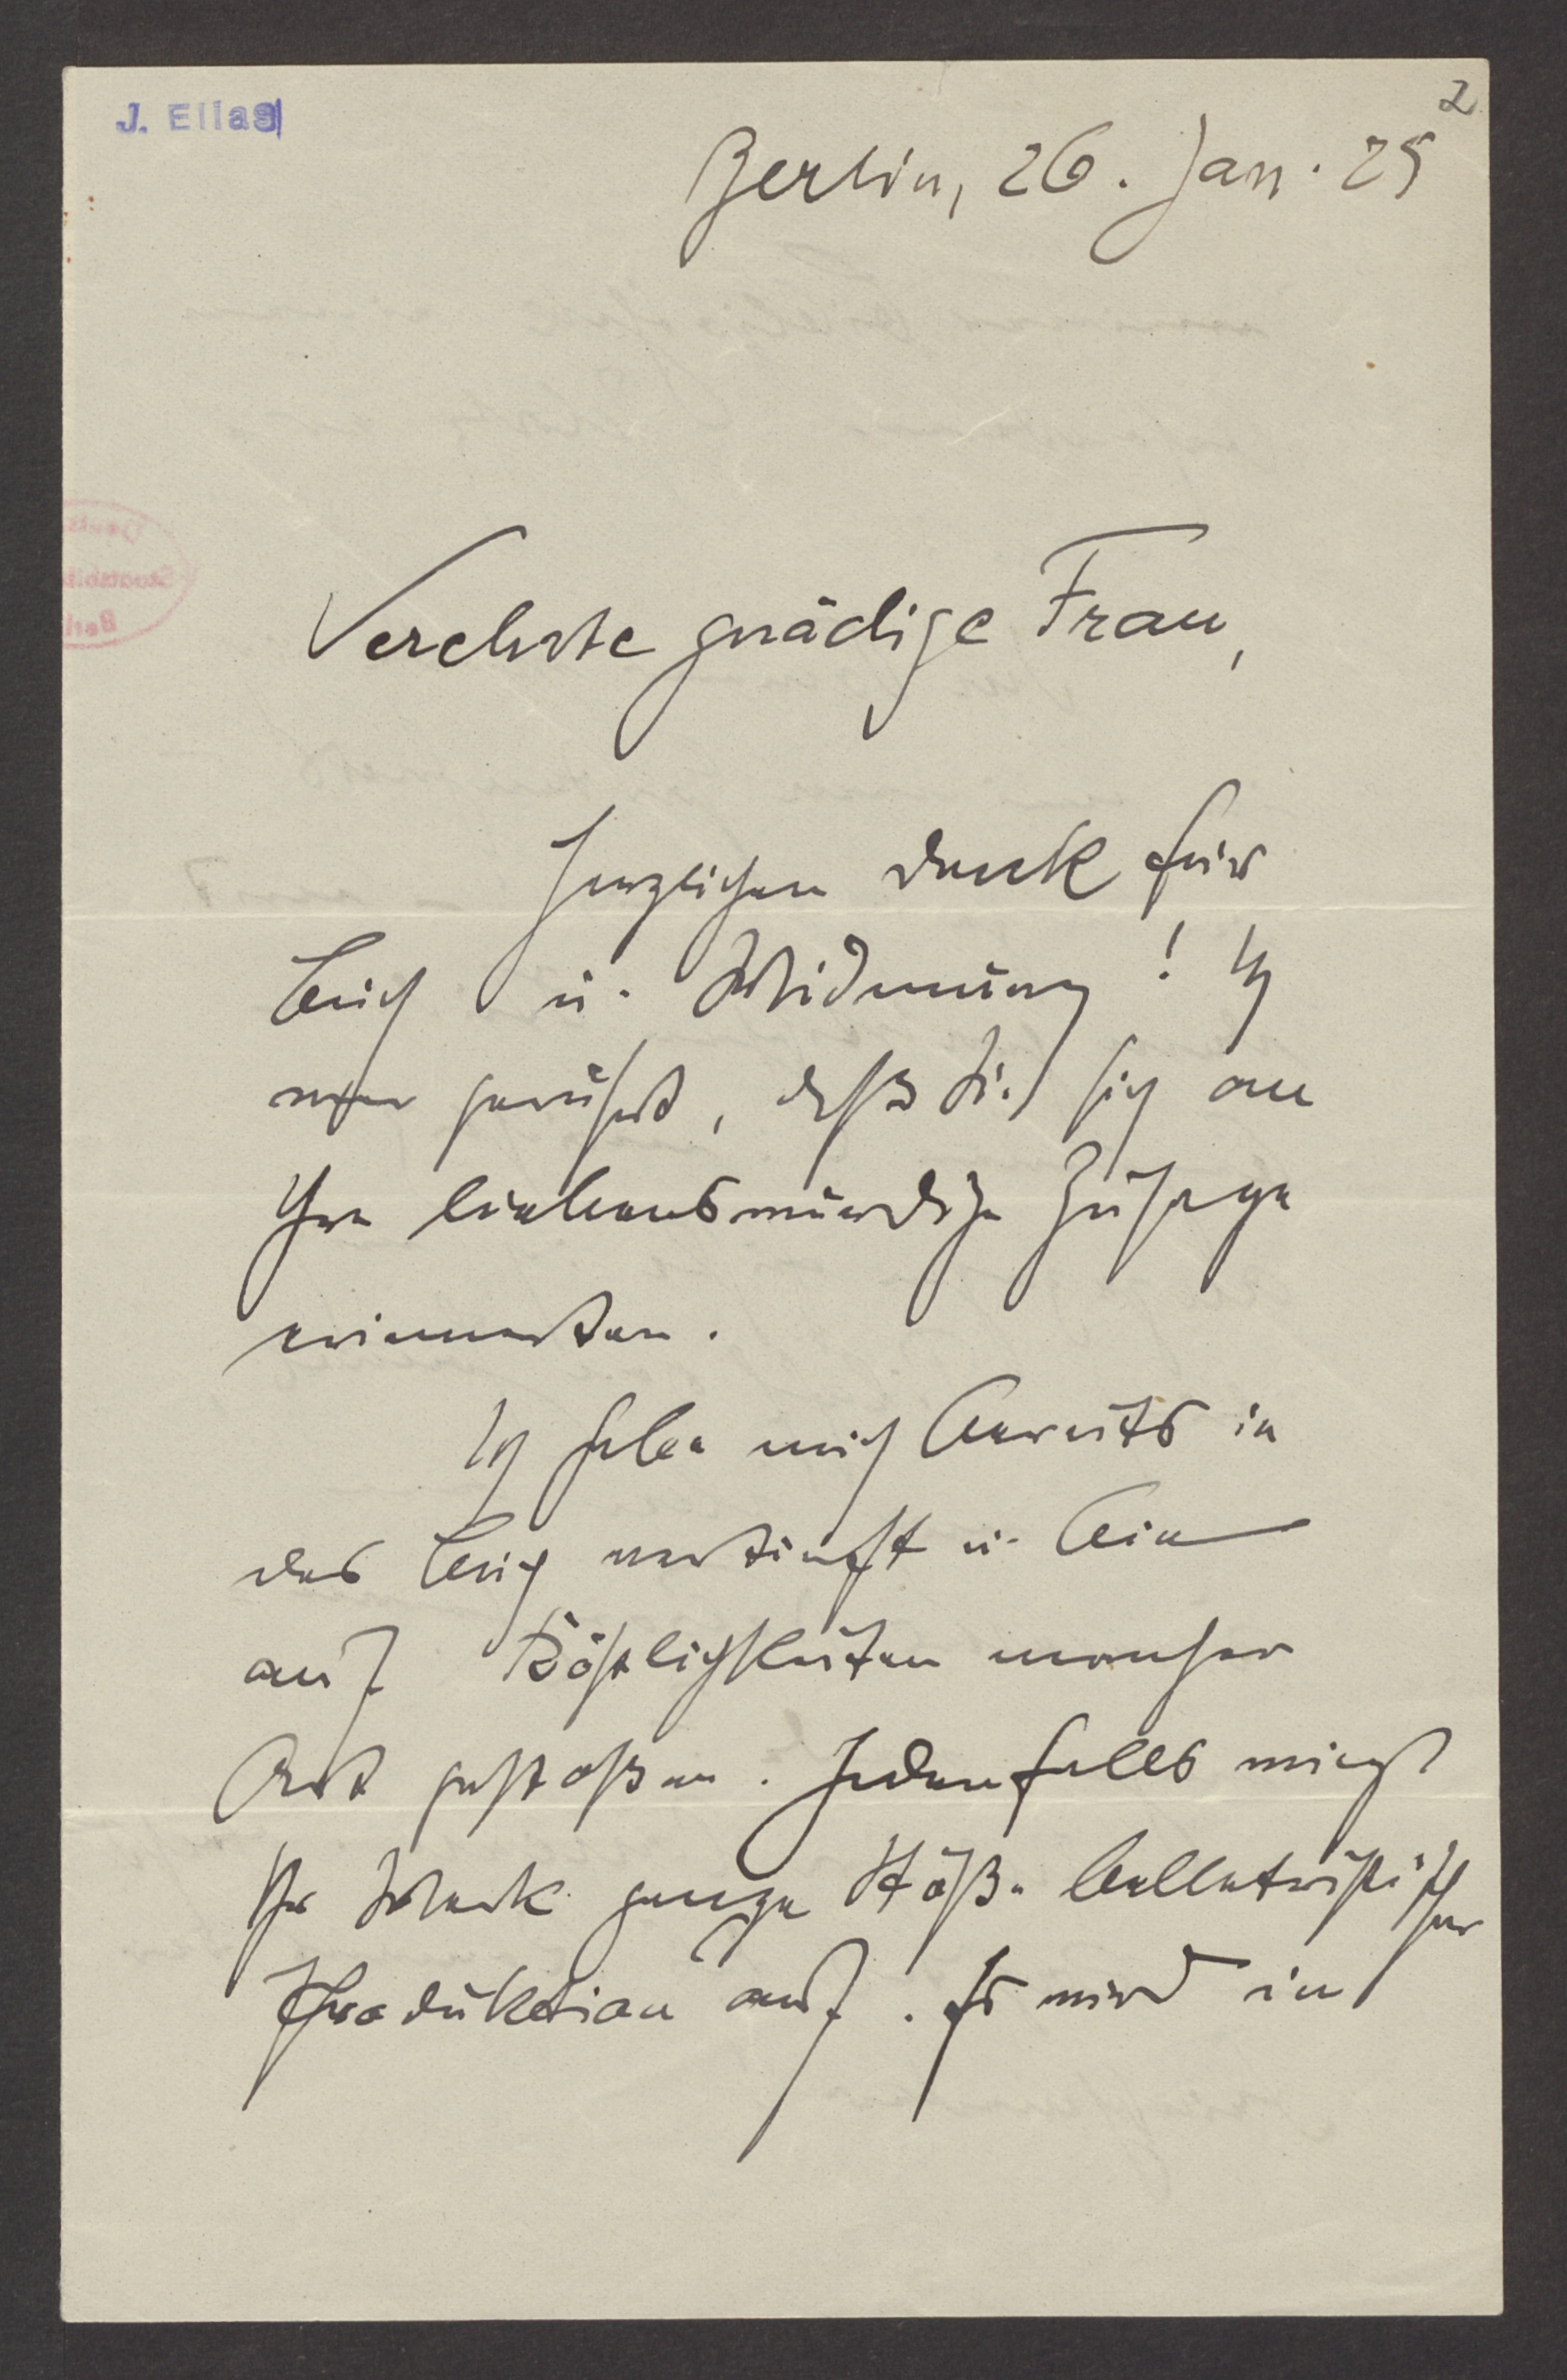 J. Elias
2
Berlin, 26. Jan. 25
Verehrte gnädige Frau,
herzlichen Dank für
Buch u. Widmung! Ich
war gerührt, daß Sie sich an
Ihre liebenswürdige Zusage
erinnerten.
Ich habe mich bereits in
das Buch vertieft u. bin
auf Köstlichkeiten mancher
Art gestoßen. Jedenfalls wiegt
Ihr Werk ganze Stöße belletristischer
Produktion auf. Es wird in